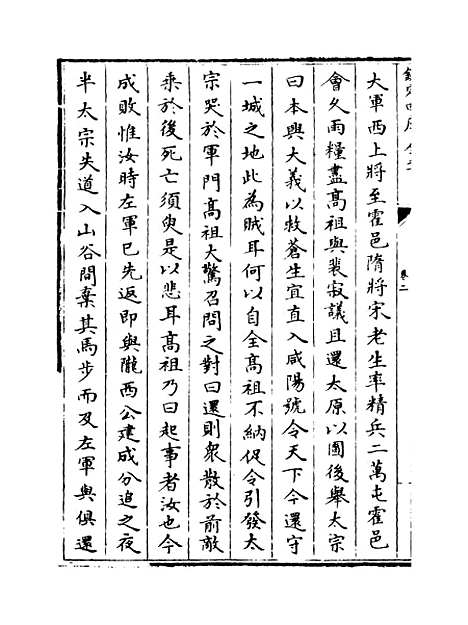 卷二
大軍西上將至霍邑隋將宋老生率精兵二萬屯霍邑
會久雨糧盡髙祖與裴寂議且還太原以圖後舉太宗
曰本興大義以救蒼生宜直入咸陽號令天下今還守
一城之地此為賊耳何以自全髙祖不納促令引發太
宗哭於軍門髙祖大驚召問之對曰還則衆散於前敵
乘於後死亡須臾是以悲耳髙祖乃曰起事者汝也今
成敗惟汝時左軍已先返即與隴西公建成分追之夜
半太宗失道入山谷間棄其馬步而及左軍與俱還